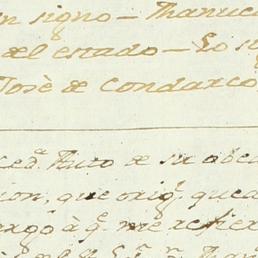 un signo – Manuel
del estado – Lo si
José de Condarco
ced.ª Auto de su obed
cion, que orig.l queda
cargo à q.e me refier